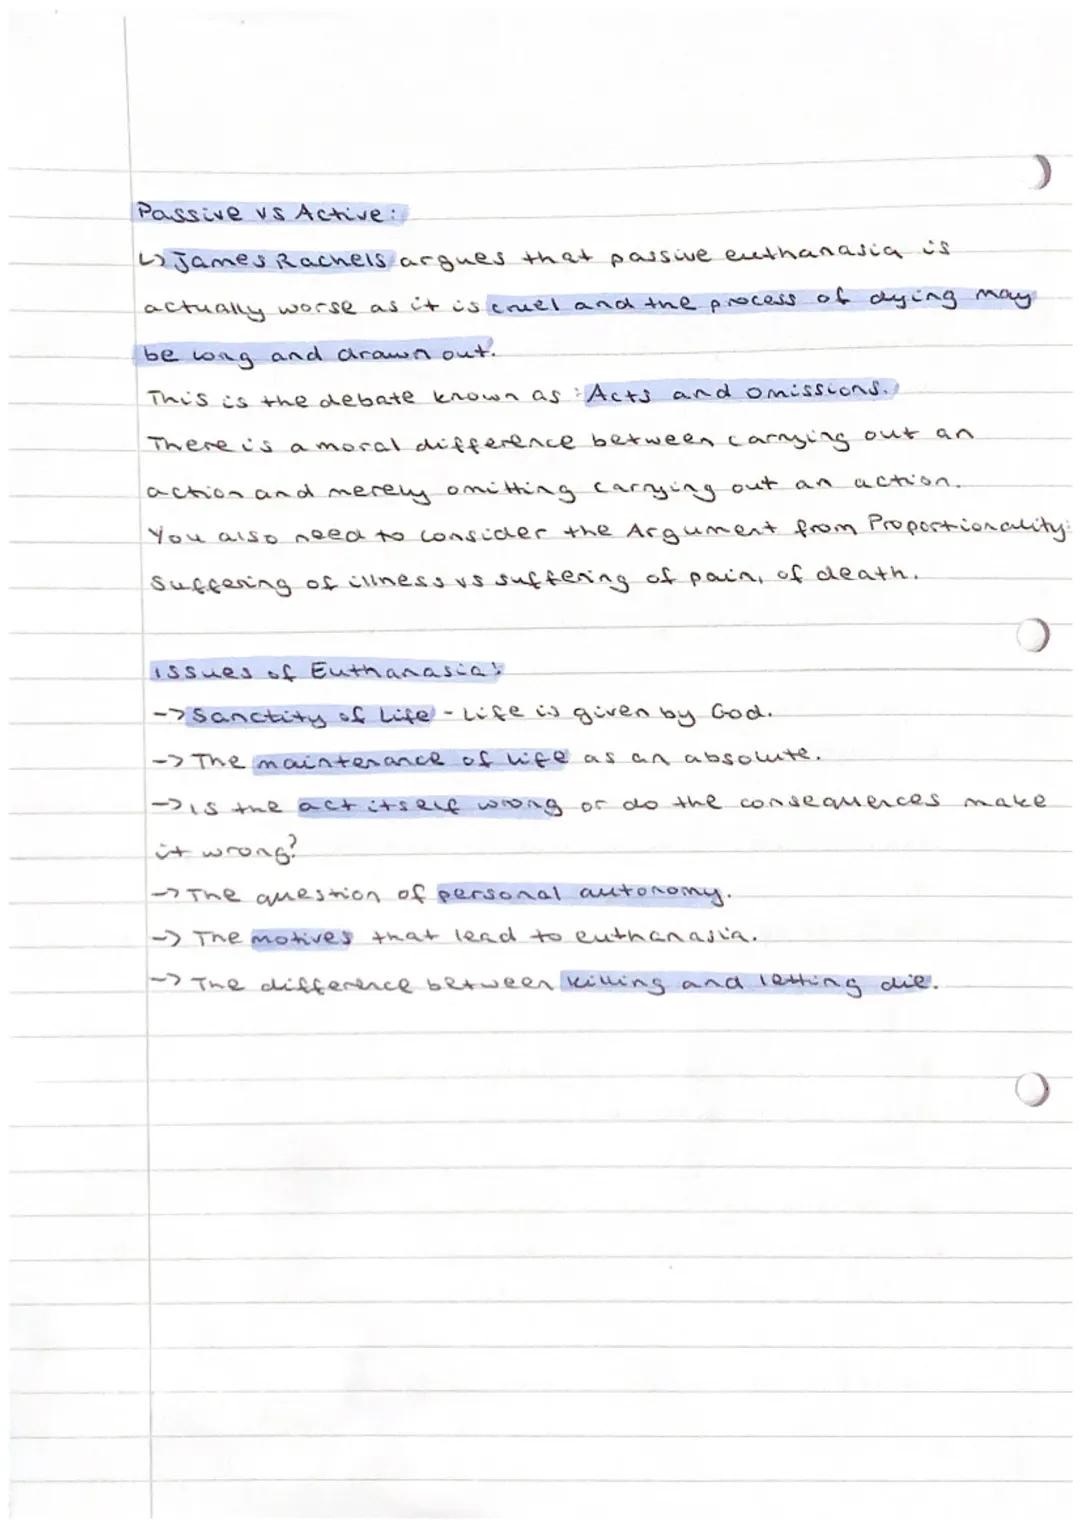 Passive vs Active:
↳ James Rachels argues that passive euthanasia is
actually worse as it is cruel and the process of dying may
be long and drawn out.
This is the debate known as: Acts and omissions.
There is a moral difference between carrying out an
action and merely omitting carrying out an action.
You also need to consider the Argument from Proportionality:
Suffering of illness vs suffering of pain, of death.
issues of Euthanasia:
-> Sanctity of Life - Life is given by God.
-> The maintenance of life as an absolute.
-> is the act itself wrong or do the consequences make
it wrong?
-> The question of personal autonomy.
-> The motives that lead to euthanasia.
-> The difference between killing and letting die.